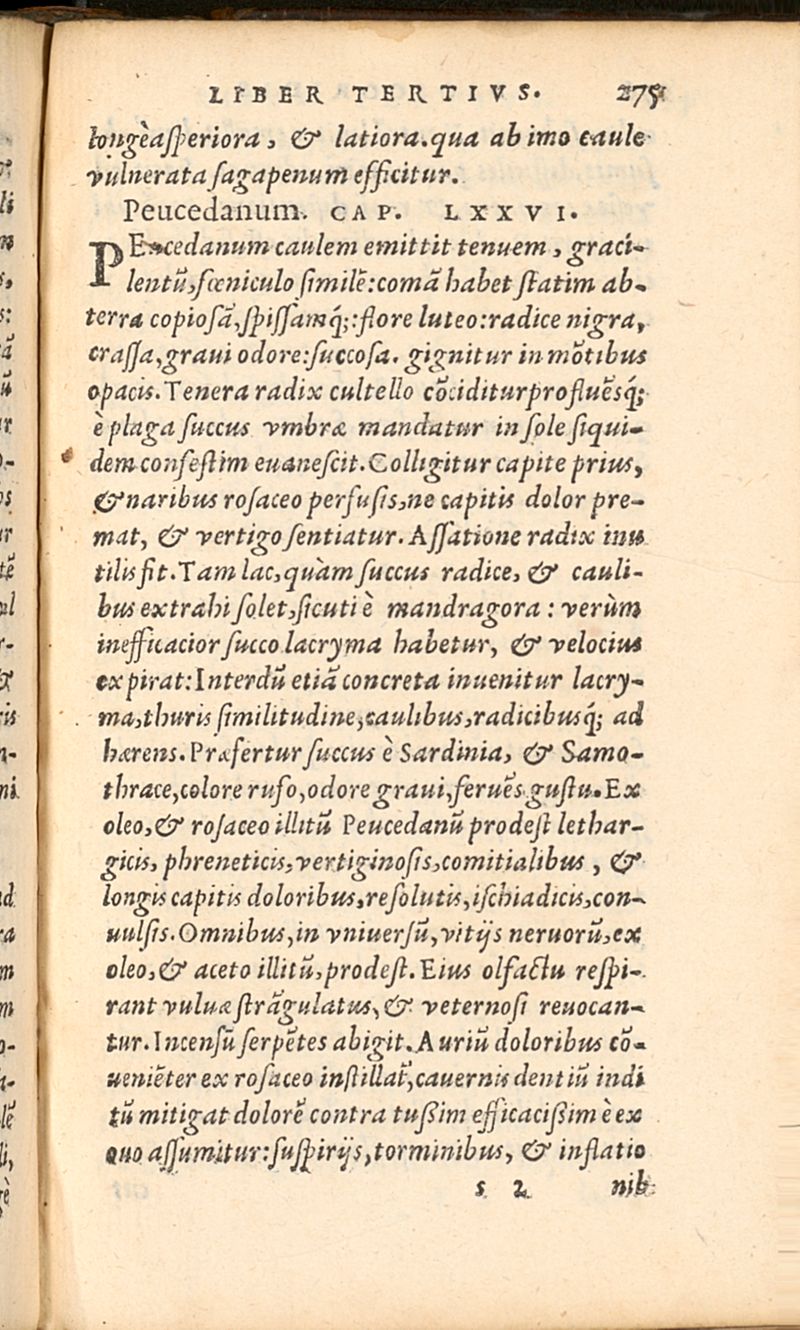 LIBER TERTIVS. 275
longè asperiora, & latiora. qua ab imo caule
vulnerata sagapenum efficitur.
Peucedanum. CAP. LXXVI.
PEucedanum caulem emittit tenuem, graci-
lentū, fœniculo similē: comā habet statim ab-
terra copiosā, spissamq́;: flore luteo: radice nigra,
crassa, graui odore: succosa. gignitur in mōtibus
opacis. Tenera radix cultello cōciditur profluēsq́;
è plaga succus vmbræ mandatur in sole siqui-
dem confestim euanescit. Colligitur capite prius,
& naribus rosaceo perfusis, ne capitis dolor pre-
mat, & vertigo sentiatur. Assatione radix inu
tilis fit. Tam lac, quàm succus radice, & cauli-
bus extrahi solet, sicuti è mandragora: verùm
inefficacior succo lacryma habetur, & velocius
expirat: Interdū etiā concreta inuenitur lacry-
ma, thuris similitudine, caulibus, radicibusq́; ad
hærens. Præfertur succus è Sardinia, & Samo-
thrace, colore rufo, odore graui, feruēs gustu. Ex
oleo, & rosaceo illitū Peucedanū prodest lethar-
gicis, phreneticis, vertiginosis, comitialibus, &
longis capitis doloribus, resolutis, ischiadicis, con-
uulsis. Omnibus, in vniuersū, vitijs neruorū, ex
oleo, & aceto illitū, prodest. Eius olfactu respi-
rant vuluæ strāgulatus, & veternosi reuocan-
tur. Incensū serpētes abigit. Auriū doloribus cō-
ueniēter ex rosaceo instillat᷑, cauernis dentiū indi
tū mitigat dolorē contra tussim efficacissimè ex
quo assumitur: suspirijs, torminibus, & inflatio
s 2 nib